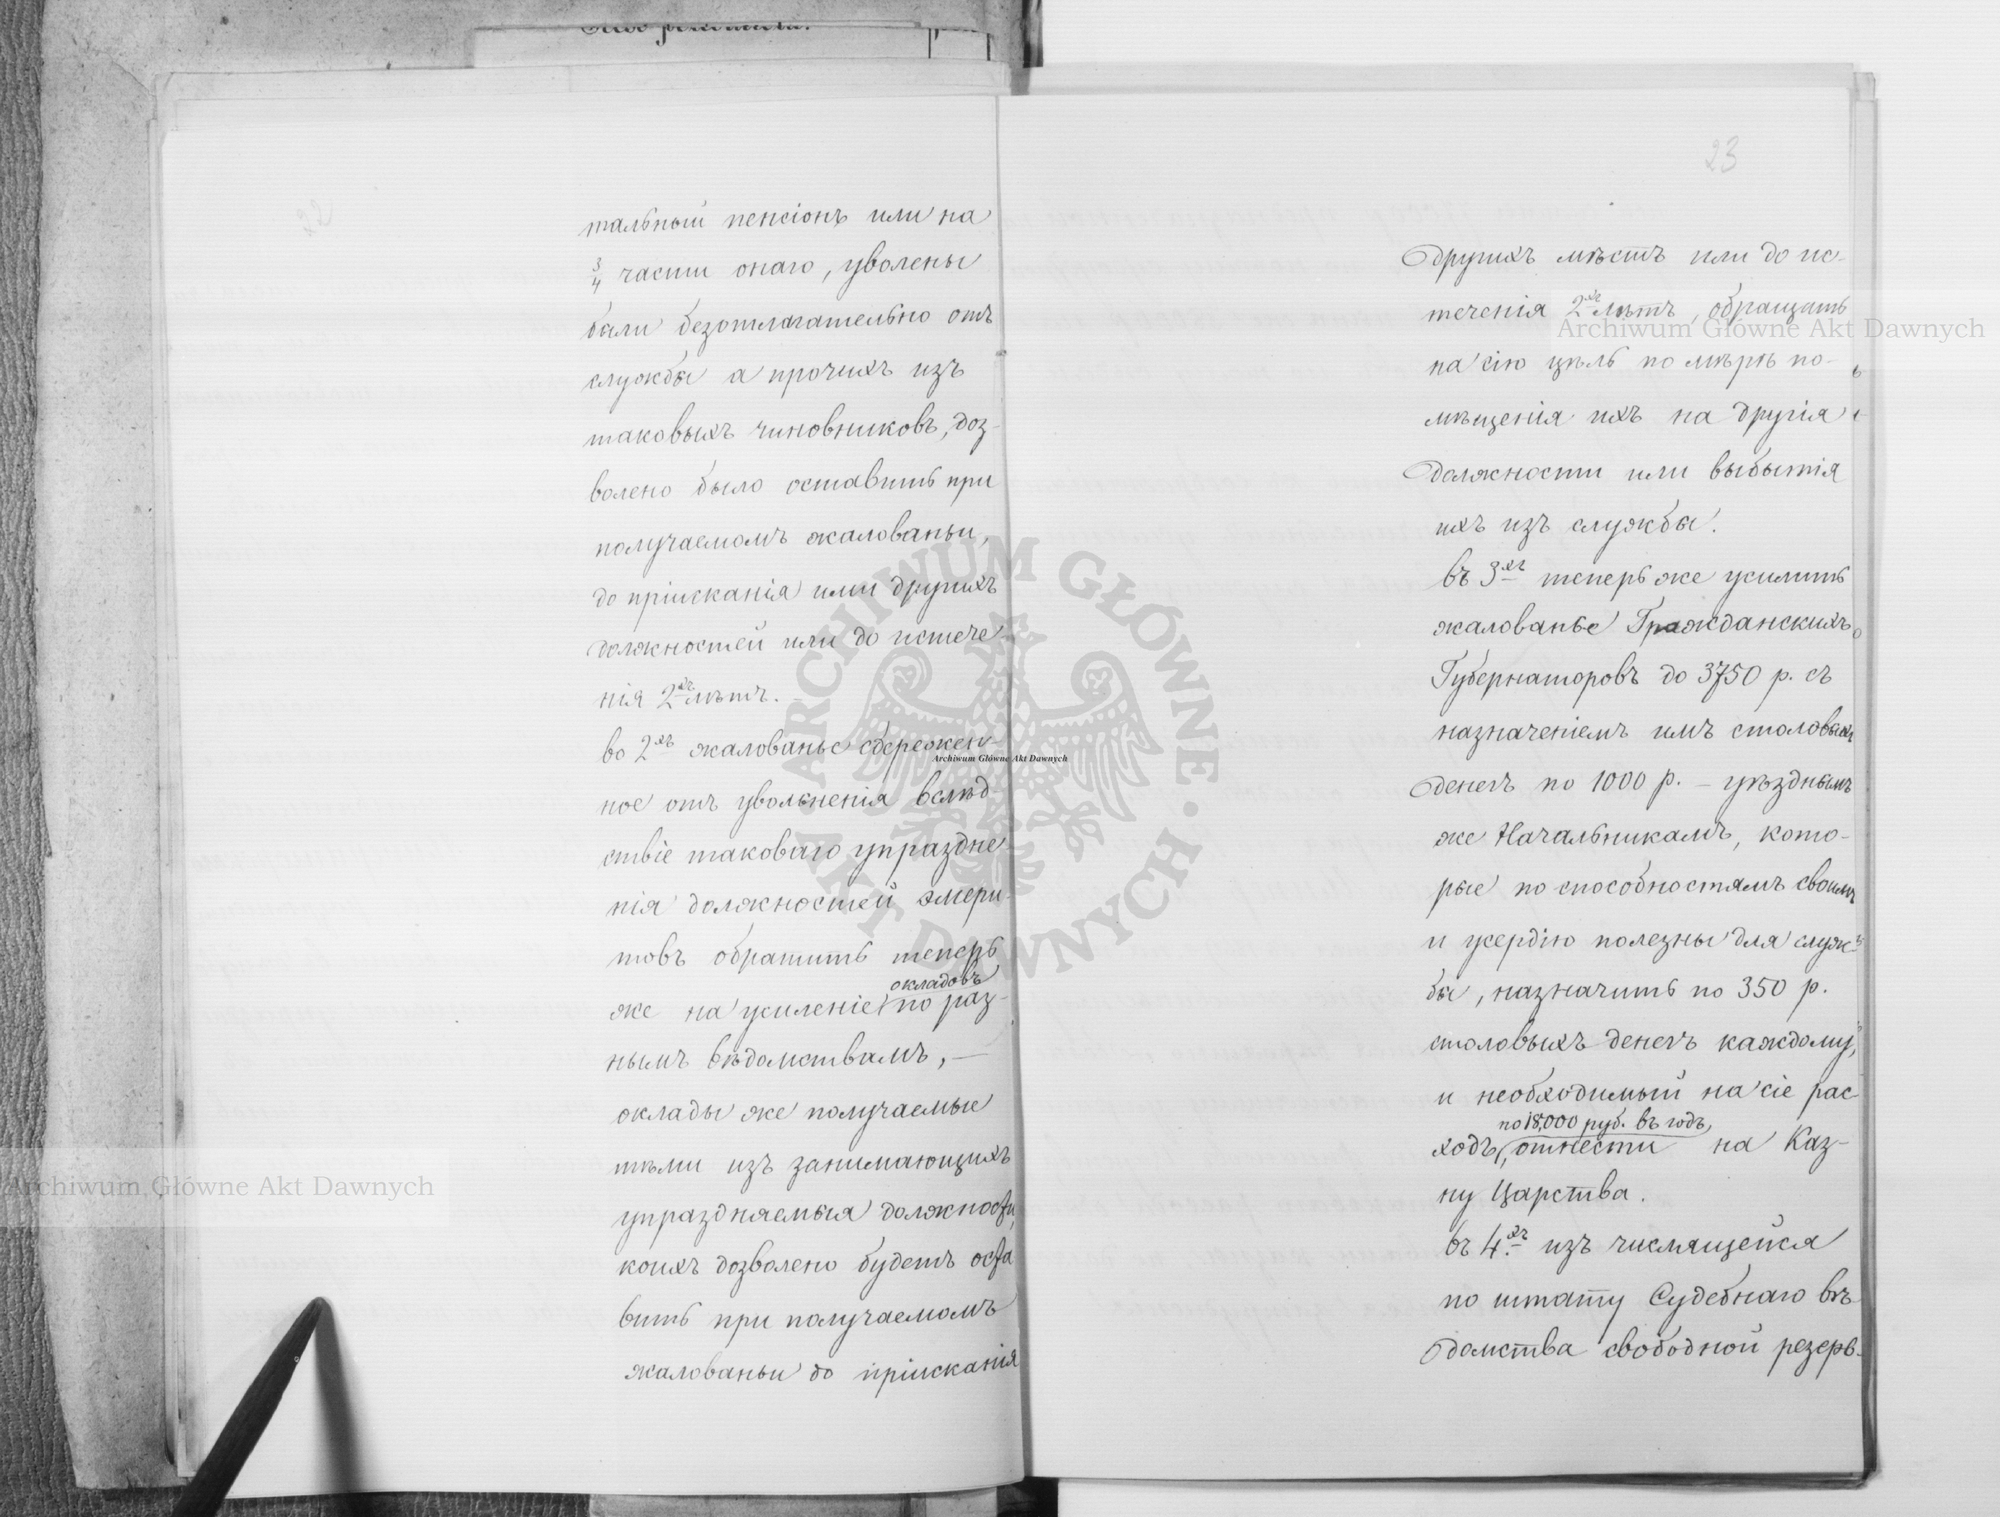 тальный пенсіонъ или на
3/4 части онаго, уволены
были безотлагательно отъ
службы а прочихъ изъ
таковыхъ чиновниковъ, доз-
волено было оставить при
получаемомъ жалованьи,
до пріисканія ими другихъ
должностей или до истече-
нія 2хъ лѣтъ.
во 2хъ жалованье сбережен-
ное отъ увольненія вслѣд-
ствіе таковаго упраздне-
нія должностей эмери-
товъ обратить теперь
окладовъ
же на усиленіе по раз-
нымъ вѣдомствамъ, —
оклады же получаемые
тѣми изъ занимающихъ
упраздняемыя должности,
коихъ дозволено будетъ оста
вить при получаемомъ
жалованьи до пріисканія
23
другихъ мѣстъ или до ис-
теченія 2хъ лѣтъ, обращать
на сію цѣль по мѣрѣ по-
мѣщенія ихъ на другія
должности или выбытія
ихъ изъ службы.
въ 3хъ теперь же усилить
жалованье Гражданскихъ
Губернаторовъ до 3750 р. съ
назначеніемъ имъ столовыхъ
денегъ по 1000 р. – уѣзднымъ
же Начальникамъ, кото-
рые по способностямъ своимъ
и усердію полезны для служ-
бы, назначить по 350 р.
столовыхъ денегъ каждому,
и необходимый на сіе рас-
по 18,000 руб. въ годъ,
ходъ, отнести на Каз-
ну Царства.
въ 4.хъ изъ числящейся
по штату Судебнаго вѣ-
домства свободной резерв-
Archiwum Główne Akt Dawnych
Archiwum Główne Akt Dawnych
Archiwum Główne Akt Dawnych
ARCHIWUM GŁÓWNE · AKT DAWNYCH ·